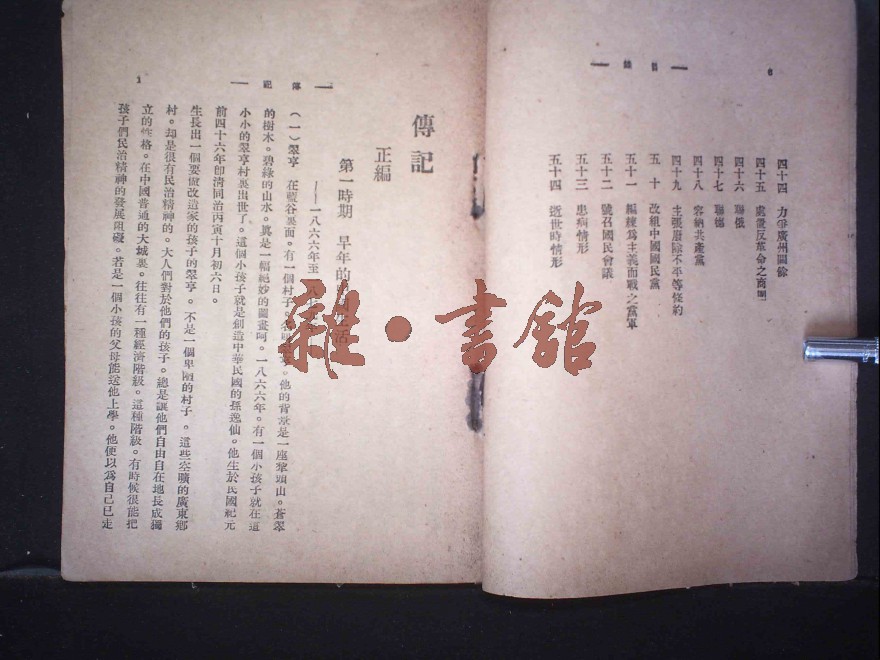 6
目錄
四十四 力爭廣州關餘
四十五 處置反革命之商團
四十六 聯俄
四十七 聯德
四十八 容納共產黨
四十九 主張廢除不平等條約
五 十 改組中國國民黨
五十一 編練為主義而戰之黨軍
五十二 號召國民會議
五十三 患病情形
五十四 逝世時情形
傳記
正編
第一時期 早年的 生活
——一八六六年至一八
傳記
（一）翠亨 在藍谷裏面。有一個村子。 他的背景是一座犂頭山。蒼翠
的樹木。碧綠的山水。眞是一幅絕妙的圖畫呵。一八六六年。有一個小孩子就在這
小小的翠亨村裏出世了。這個小孩子就是創造中華民國的孫逸仙。他生於民國紀元
前四十六年卽清同治丙寅十月初六日。
生長出一個要做改造家的孩子的翠亨。不是一個卑陋的村子。這些空曠的廣東鄉
村。却是很有民治精神的。大人們對於他們的孩子。總是讓他們自由自在地長成獨
立的性格。在中國普通的大城裏。往往有一種經濟階級。這種階級。有時候很能把
孩子們民治精神的發展阻礙。若是一個小孩的父母能送他上學。他便以為自己已走
1
雜·書館